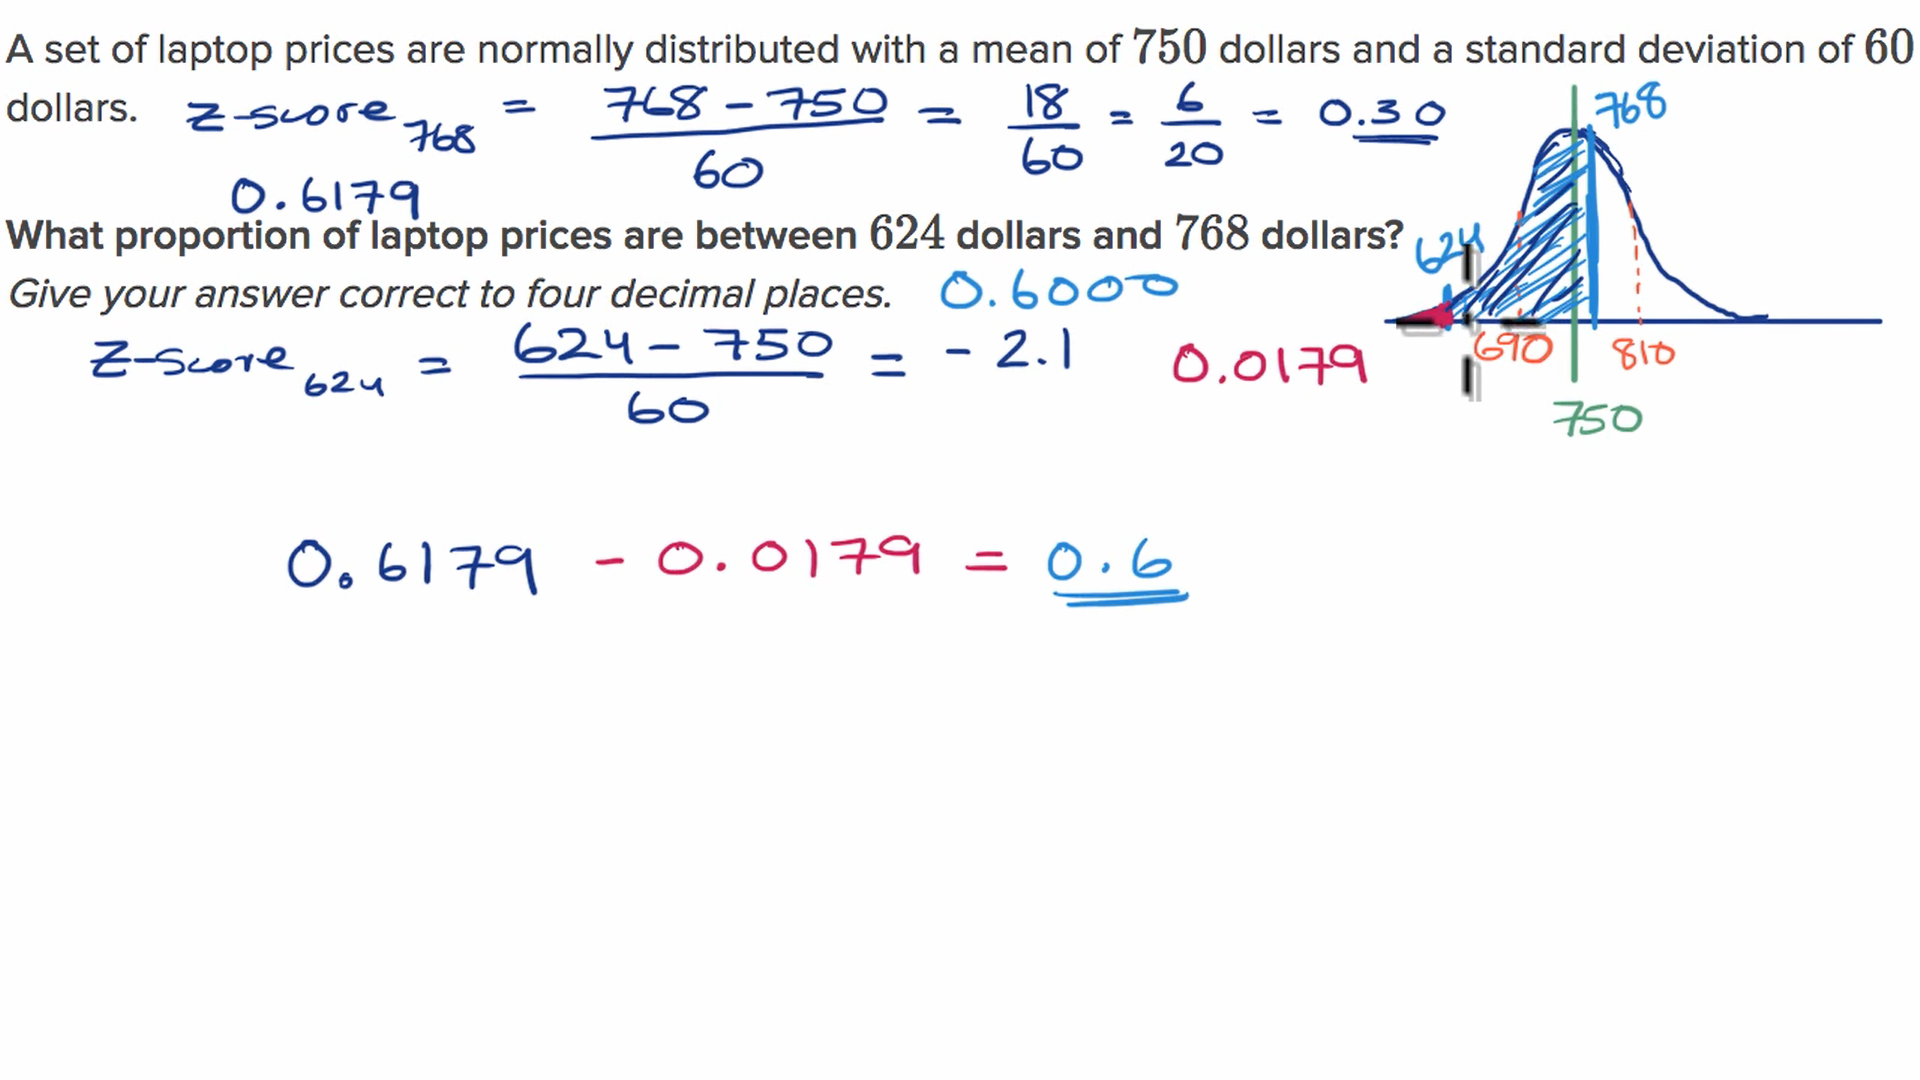 A set of laptop prices are normally distributed with a mean of 750 dollars and a standard deviation of 60
dollars.
z-score 768 = 768 - 750 / 60 = 18 / 60 = 6 / 20 = 0.30
768
0.6179
What proportion of laptop prices are between 624 dollars and 768 dollars?
624
Give your answer correct to four decimal places.
0.6000
z-score 624 = 624 - 750 / 60 = - 2.1
0.0179
690
810
750
0.6179 - 0.0179 = 0.6